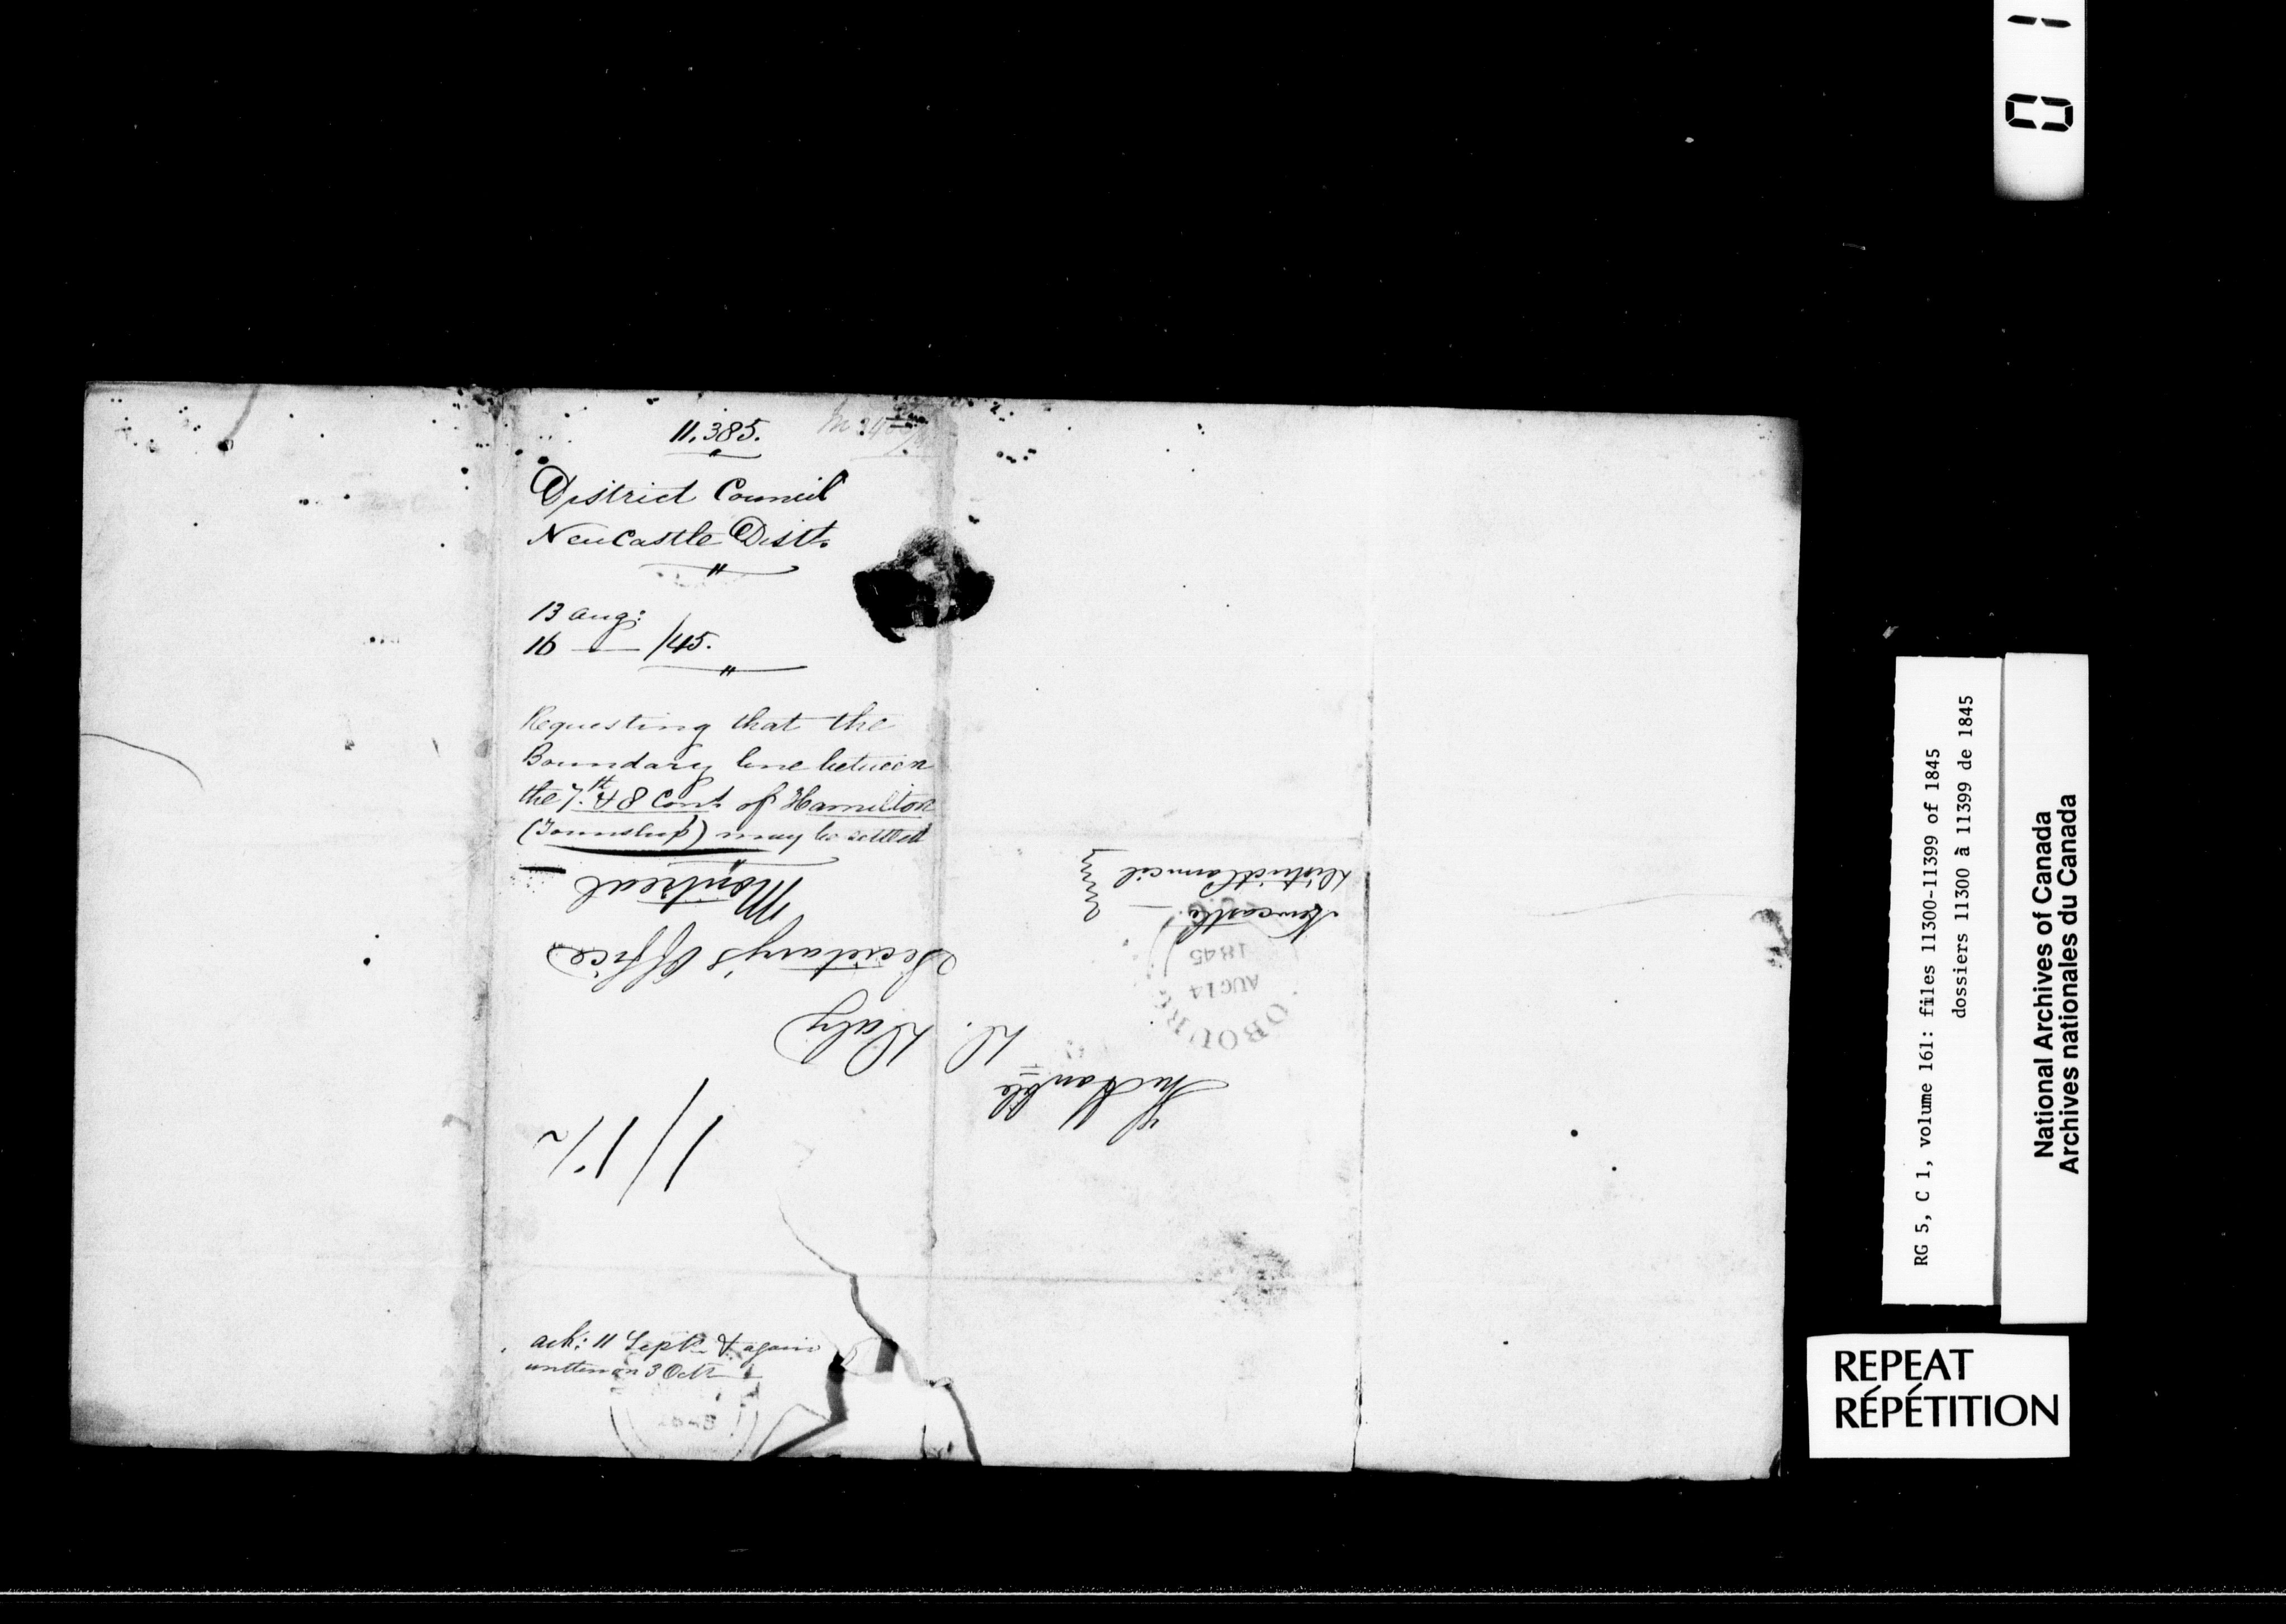 11.385.
District Council
NewCastle Distt.
13 Aug:
16 — /45.
Requesting that the
Boundary line between
the 7th & 8 Cont. of Hamilton
(Township) may be settled
ack: 11 Sept. & again
written on 3 Octr
Newcastle
District Council
The Honble
D. Daly
Secretary's Office
Montreal
1/1½
COBOURG
AUG 14
1845
RG 5, C 1, volume 161: files 11300-11399 of 1845
dossiers 11300 à 11399 de 1845
National Archives of Canada
Archives nationales du Canada
REPEAT
RÉPÉTITION